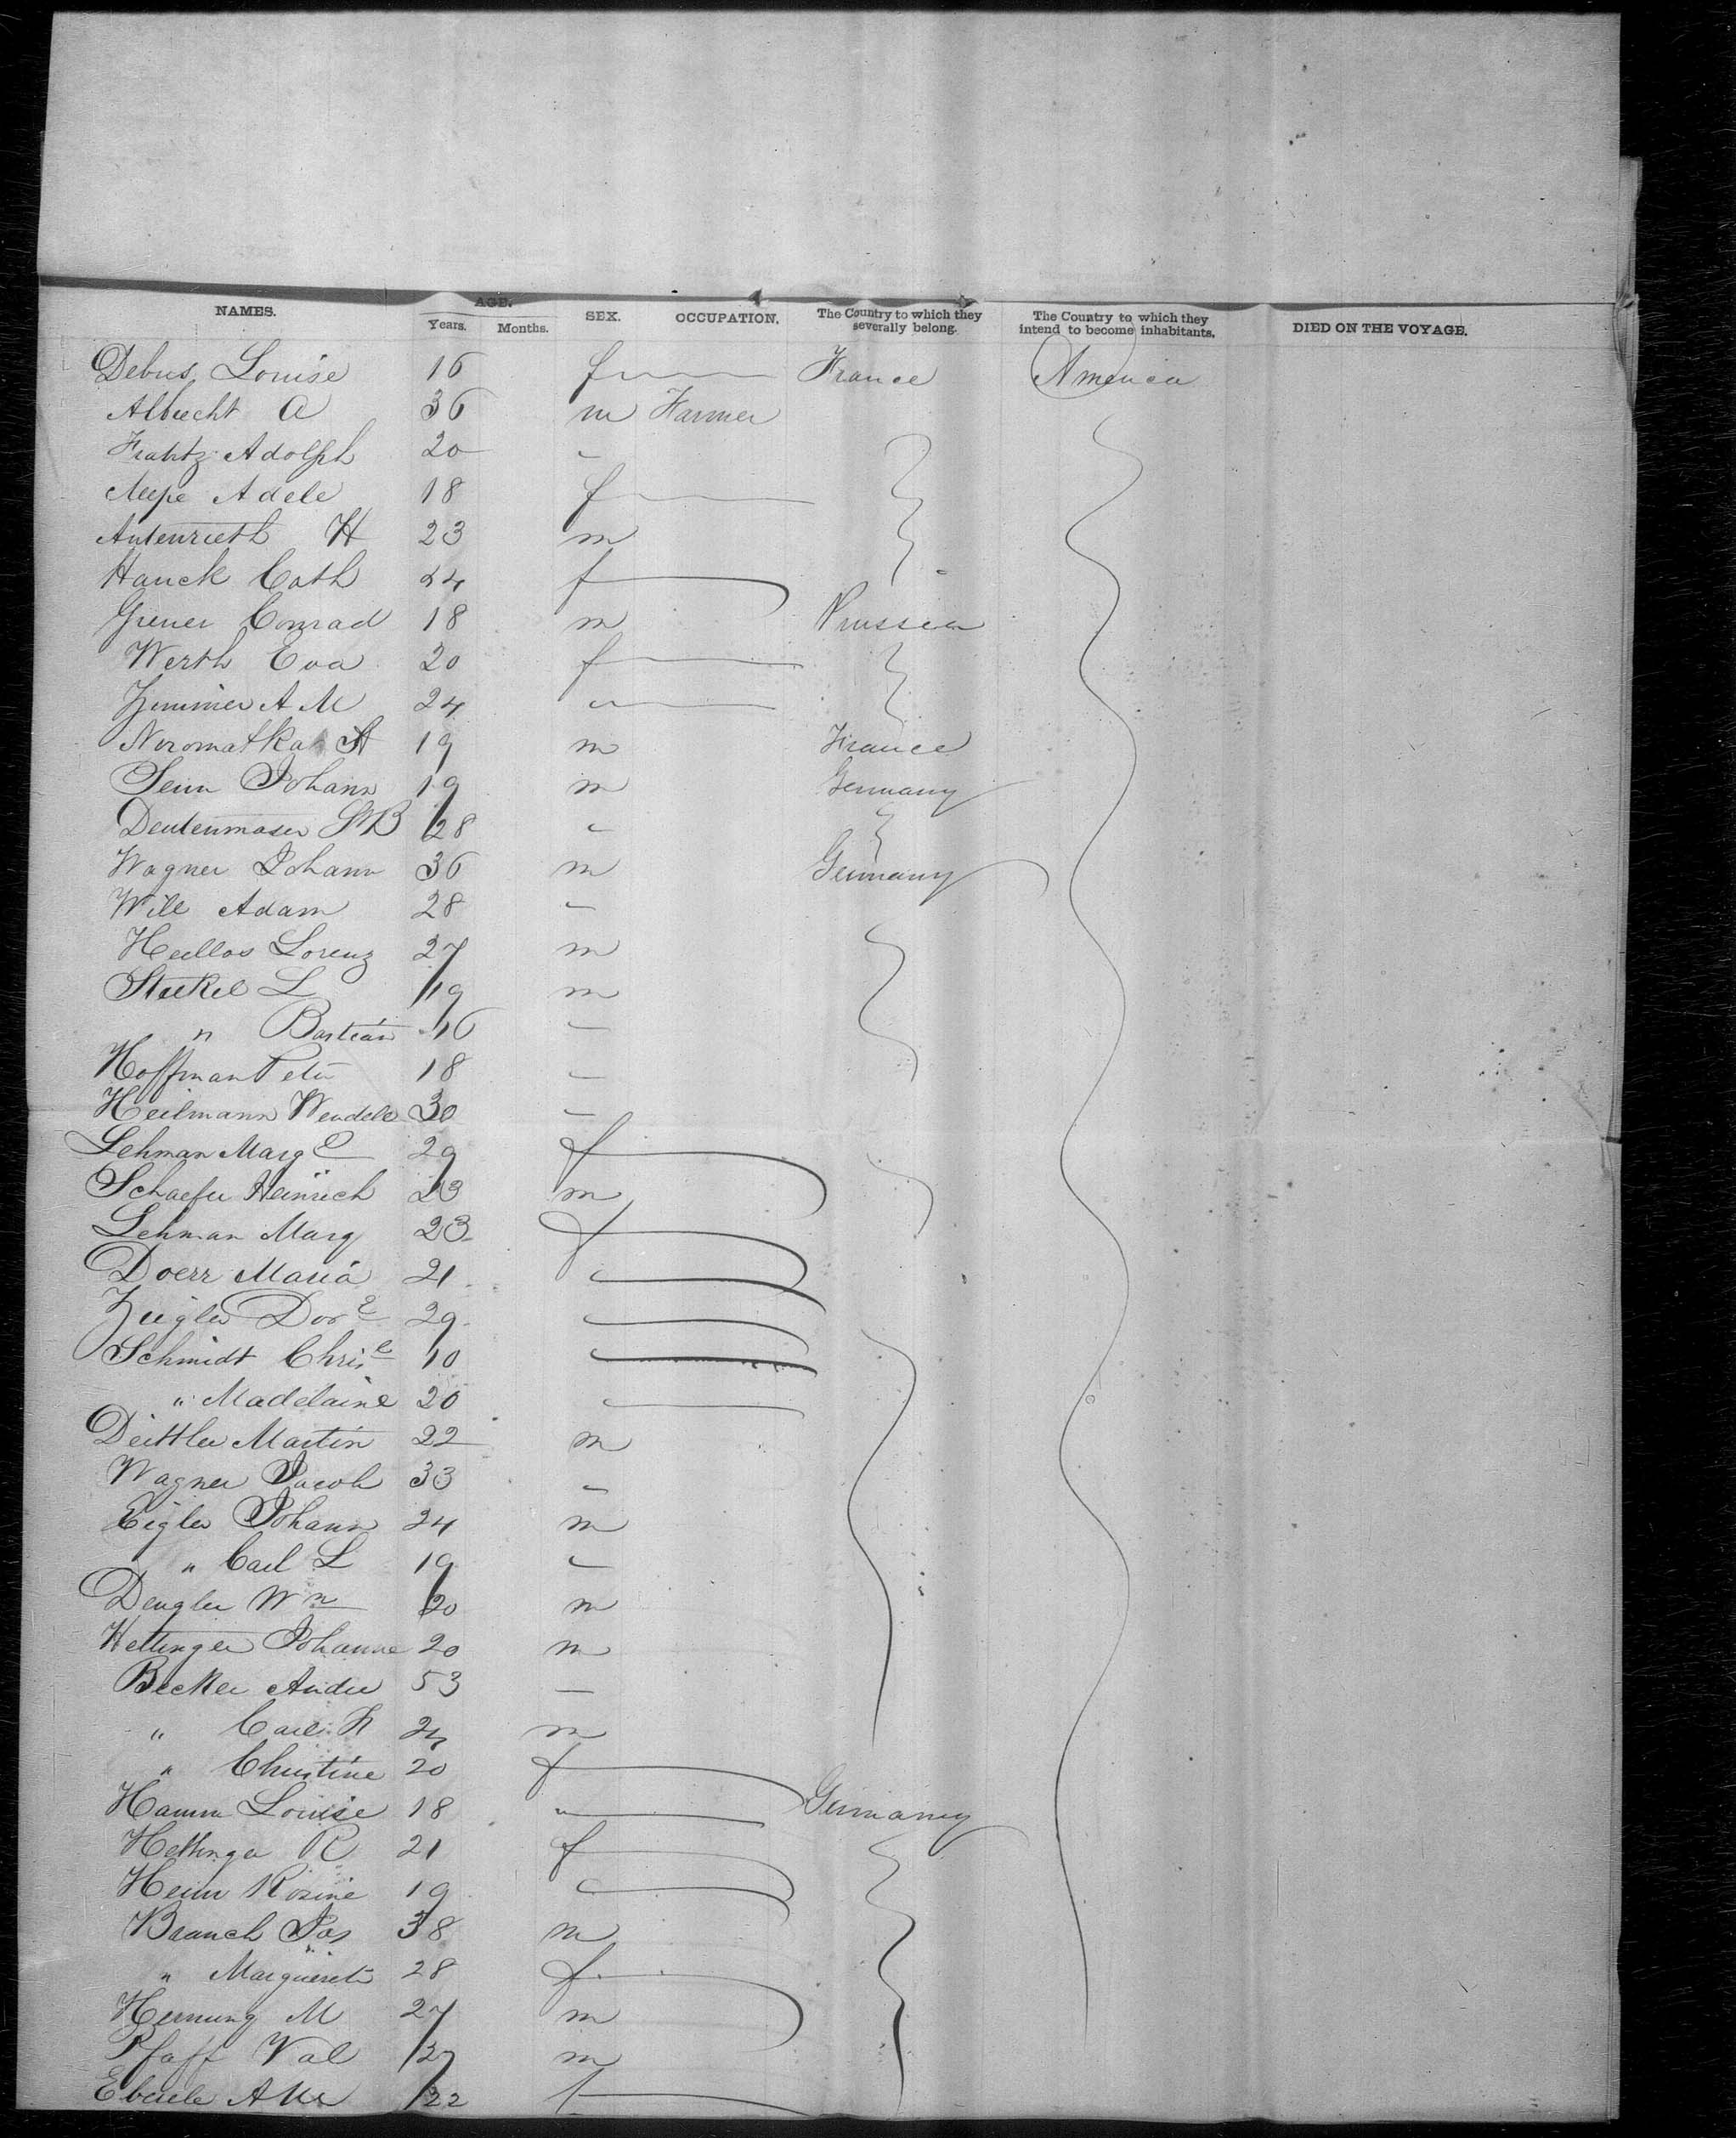 NAMES. AGE. SEX. OCCUPATION. The Country to which they severally belong. The Country to which they intend to become inhabitants. DIED ON THE VOYAGE.
Years. Months.
Debus Louise 16 f France America
Albrecht A 36 m Farmer
Frantz Adolph 20 "
Adele 18 f
Autenrieth H 23 m
Hauck Cath 24 f
Grener Conrad 18 m Prussia
Werth Eva 20 f
Zimmer A M 24 "
Noromatka A 19 m France
Senn Johann 19 m Germany
Deutenmoser 28 "
Wagner Johann 36 m Germany
Will Adam 28 "
Lorenz 27 m
Steekel L 19 m
" Bastian 16 "
Hoffman Peter 18 "
Heilmann Wendele 30 "
Lehman Marg e 29 f
Schaefer Heinrich 23 m
Lehman Marg 23 f
Doerr Maria 21 "
Zeigler Dor e 29 "
Schmidt Chris e 10 "
" Madelaine 20 "
Deittler Martin 22 m
Wagner Jacob 33 "
Eigler Johann 24 m
" Carl L 19 "
Dengler Wm 20 m
Hettinger Johanne 20 m
Becker Andre 53 "
" Carl m
" Christine 20 f
Hamm Louise 18 " Germany
Hettinger R 21 f
Heim Rosine 19 "
Branch Jos 38 m
" Marguerete 28 f
Hernung M 27 m
Pfaff Val 27 m
Eberle 22 f